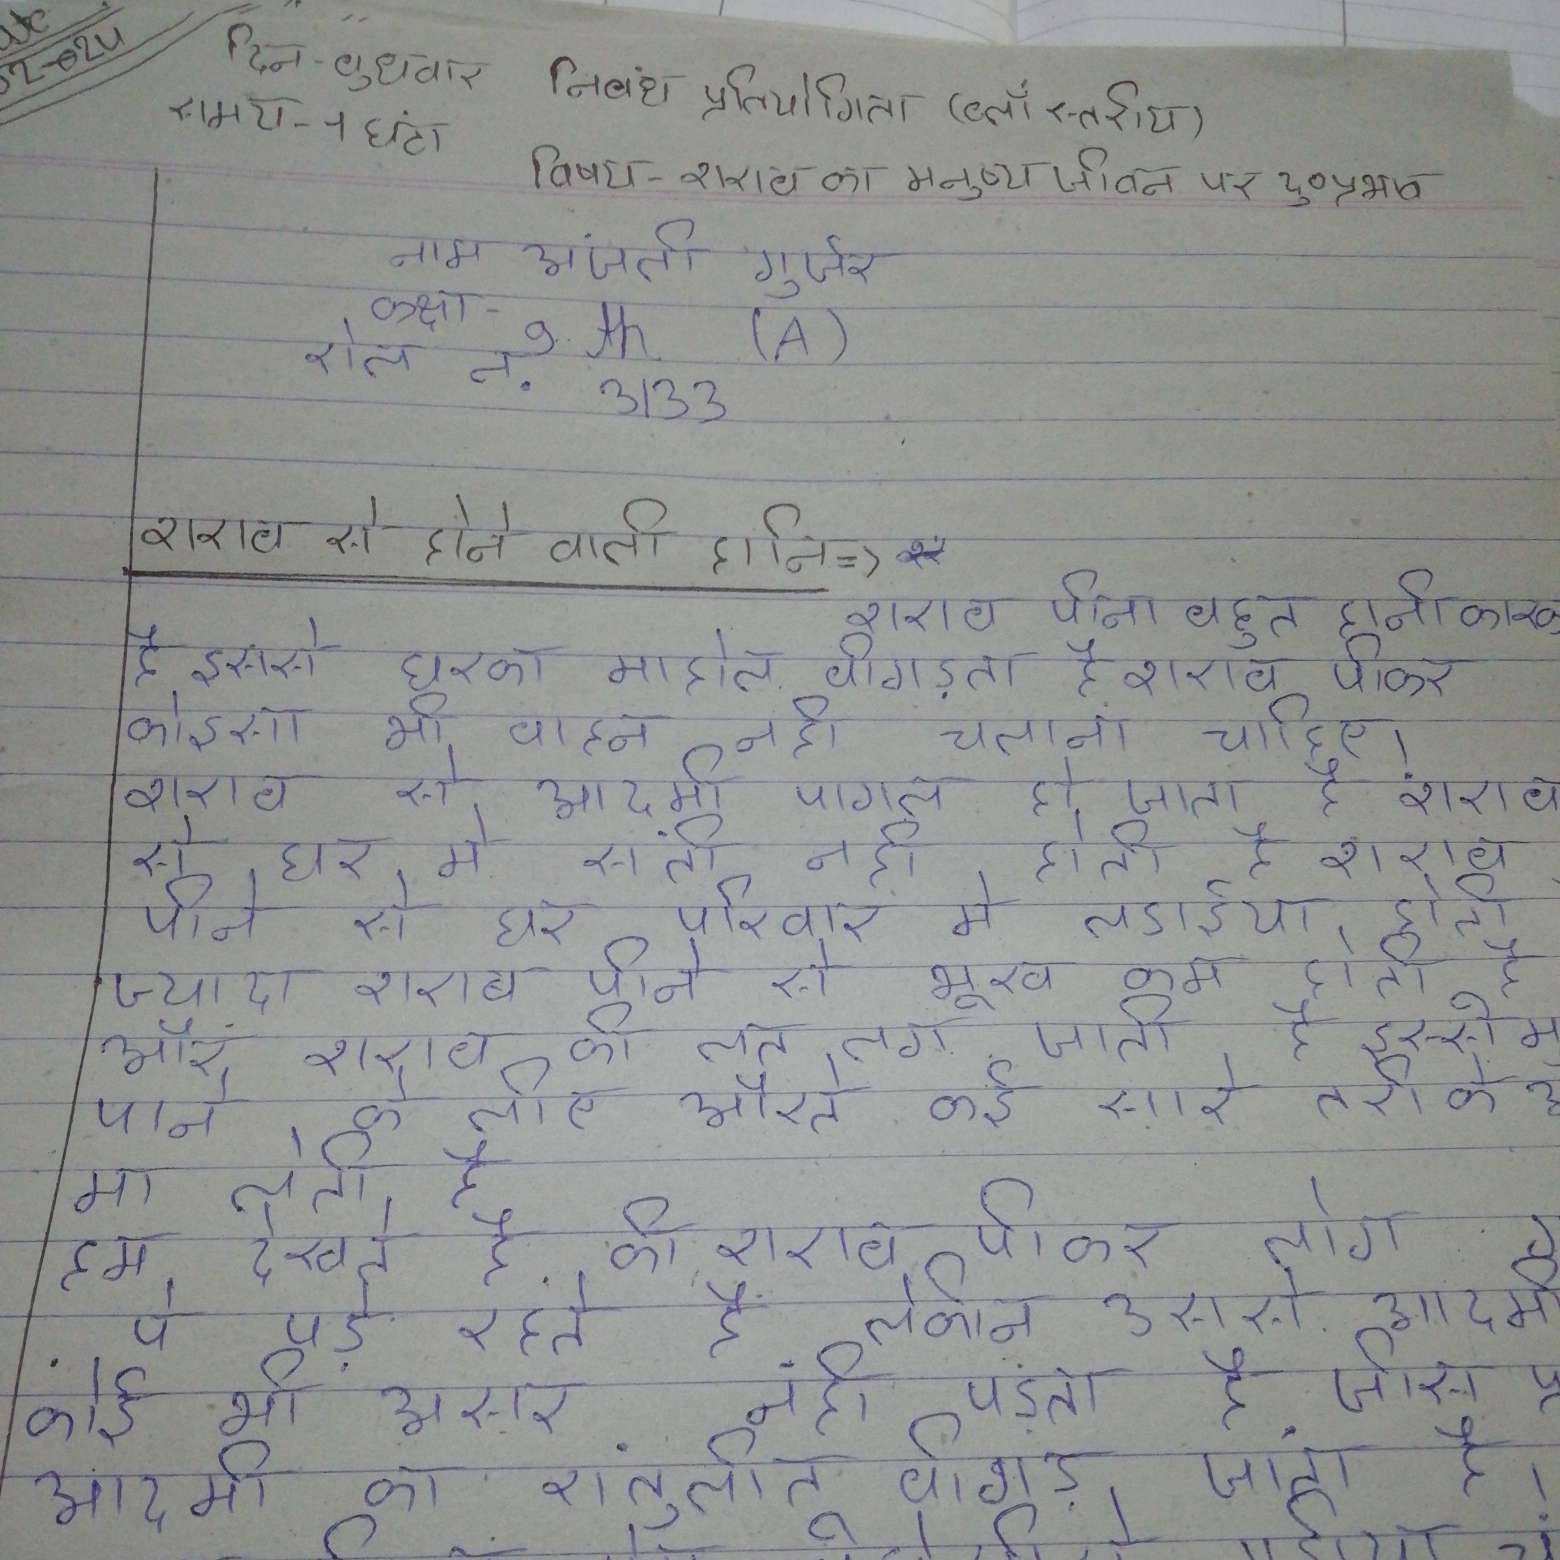 दिन-बुधवार
निबंध प्रतियोगिता (क्लाँ स्तरीय)
समय-1 घंटा
विषय-शराब का मनुष्य जीवन पर दुष्प्रभाव
नाम अंजली गुर्जर
कक्षा- 9.th (A)
रोल न. 3133
शराब से होने वाली हानि=>
शराब पीना बहुत हानीकारक
है इससे घरका माहोल बीगड़ता है शराब पीकर
कोइसा भी वाहन नही चलाना चाहिए।
शराब से आदमी पागल हो जाता है शराब
से घर मे सांती नही होती है शराब
पीने से घर परिवार मे लडाईया होती
ज्यादा शराब पीने से भूख कम होती है
और शराब की लत लग जाती है इस्से
पाने के लीए औरते कई सारे तरीके
मा लेती है
हम देखते है की शराब पीकर लोग
पे पड़े रहते है लेकीन उससे आदमी
कोई भी असर नही पड़ता है जीस
आदमी का संतुलीत बीगड़ जाता है।